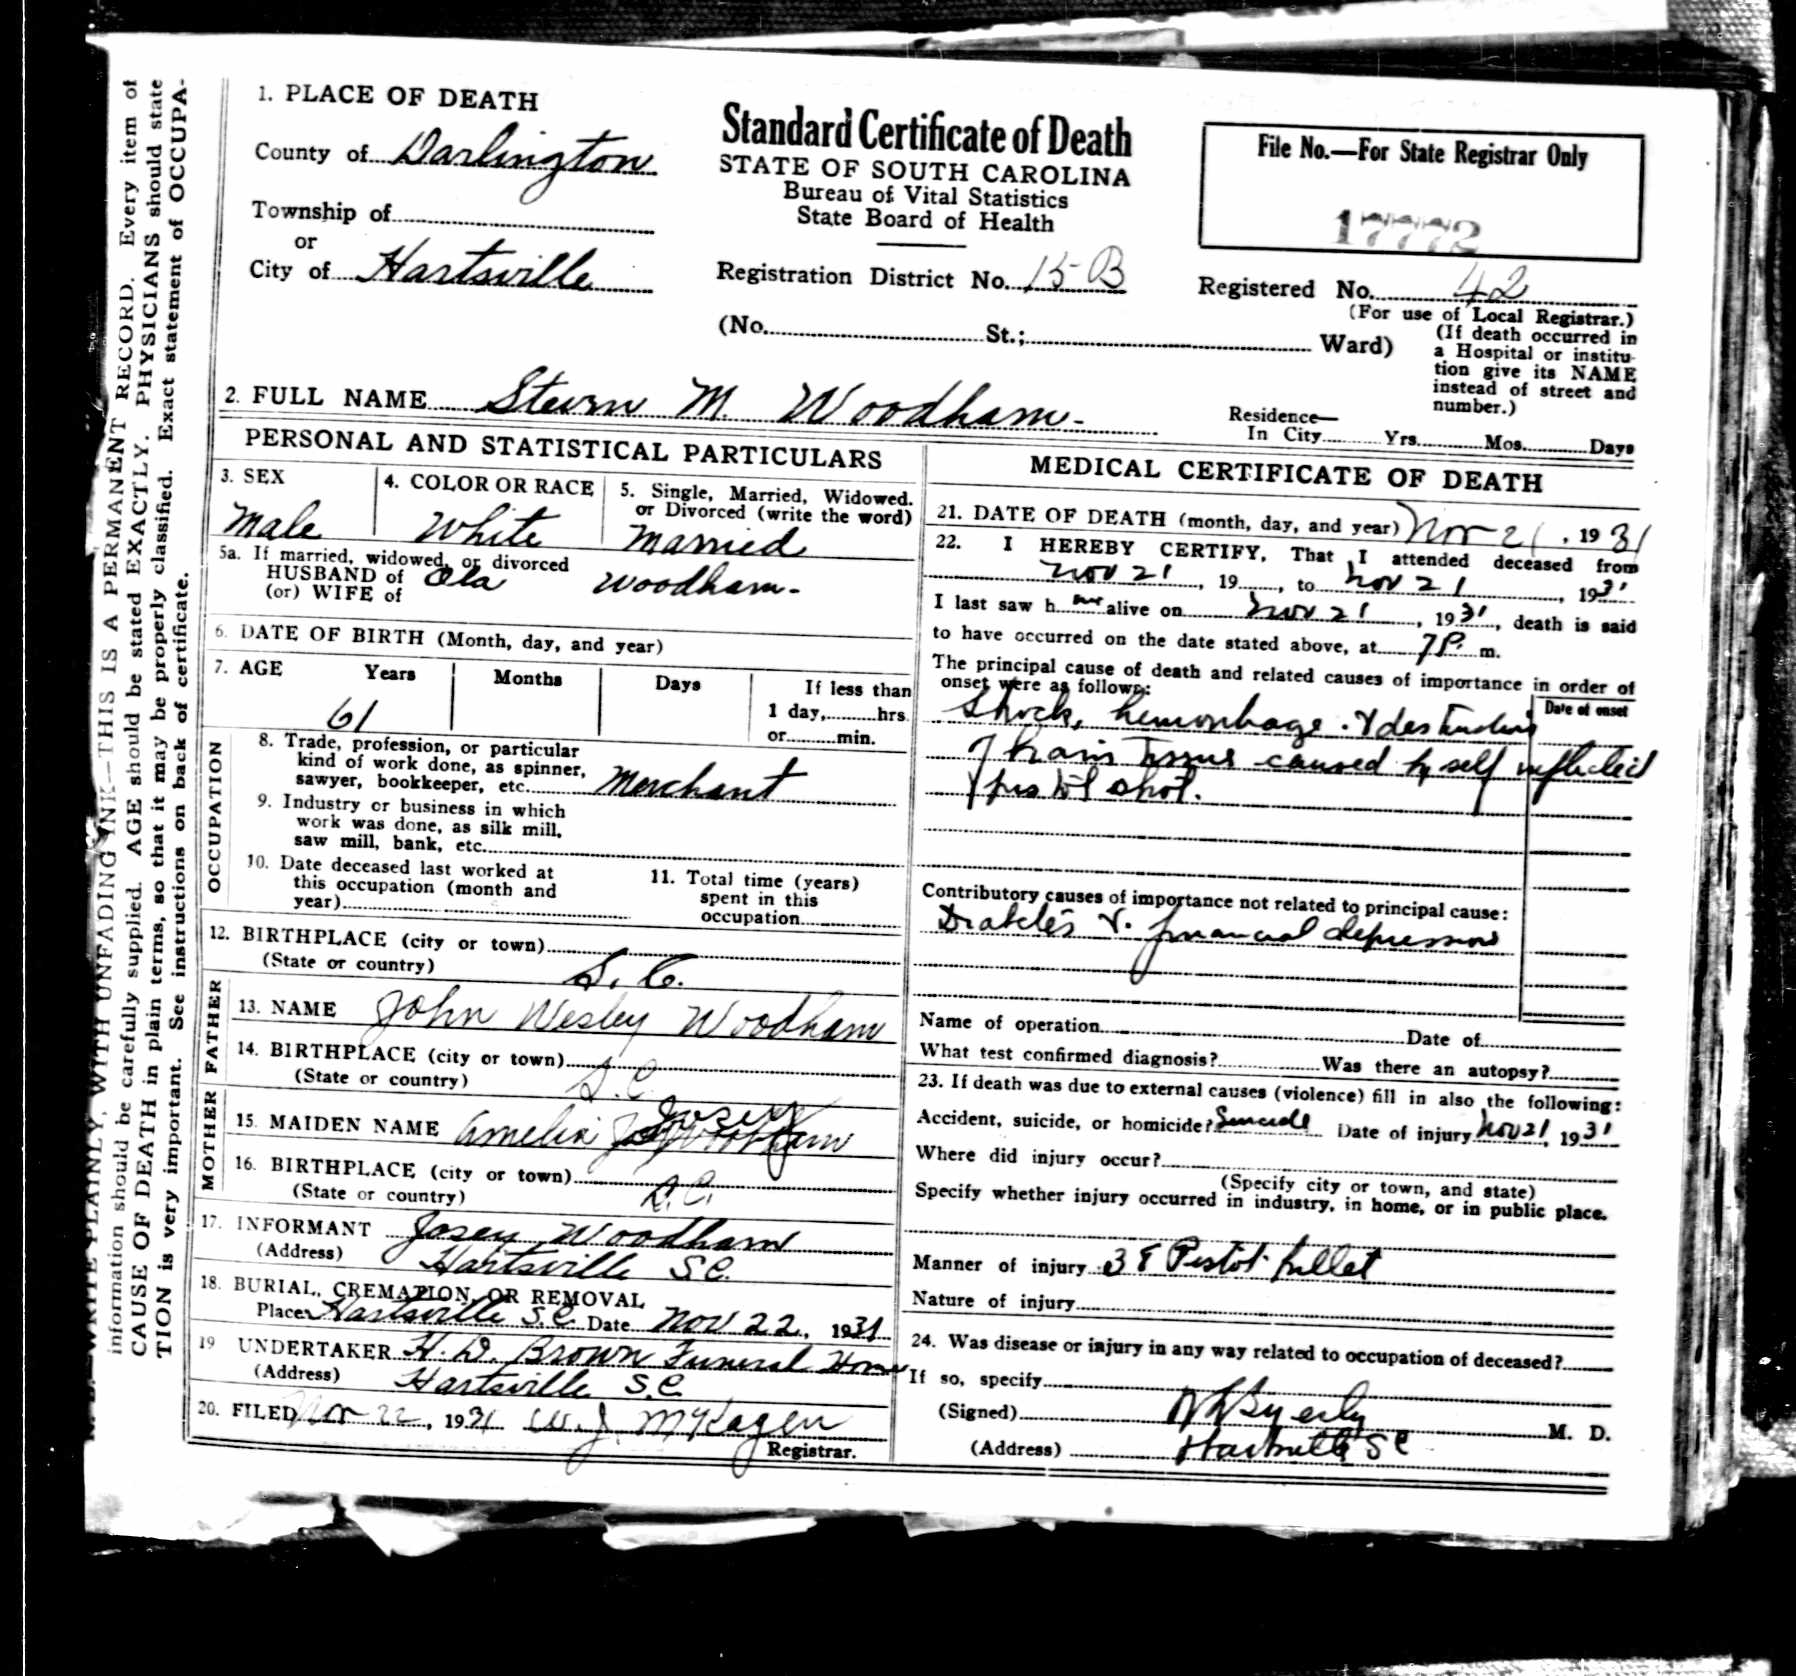 1. PLACE OF DEATH
County of Darlington
Township of
or
City of Hartsville
Standard Certificate of Death
STATE OF SOUTH CAROLINA
Bureau of Vital Statistics
State Board of Health
Registration District No. 15-B
(No. St.; Ward)
File No.—For State Registrar Only
17772
Registered No. 42
(For use of Local Registrar.)
(If death occurred in
a Hospital or institu-
tion give its NAME
instead of street and
number.)
2. FULL NAME Steven M. Woodham-
Residence—
In City Yrs. Mos. Days
PERSONAL AND STATISTICAL PARTICULARS
3. SEX
Male
4. COLOR OR RACE
White
5. Single, Married, Widowed.
or Divorced (write the word)
Married
5a. If married, widowed, or divorced
HUSBAND of
(or) WIFE of
Ola Woodham-
6. DATE OF BIRTH (Month, day, and year)
7. AGE Years Months Days If less than
61
1 day, hrs.
or min.
OCCUPATION
8. Trade, profession, or particular
kind of work done, as spinner,
sawyer, bookkeeper, etc. Merchant
9. Industry or business in which
work was done, as silk mill,
saw mill, bank, etc.
10. Date deceased last worked at
this occupation (month and
year)
11. Total time (years)
spent in this
occupation
12. BIRTHPLACE (city or town)
(State or country) S. C.
FATHER
13. NAME John Wesley Woodham
14. BIRTHPLACE (city or town)
(State or country) S.C.
MOTHER
15. MAIDEN NAME Amelia Josey
16. BIRTHPLACE (city or town)
(State or country) S.C.
17. INFORMANT Josey Woodham
(Address) Hartsville S.C.
18. BURIAL, CREMATION, OR REMOVAL
Place Hartsville S.C. Date Nov 22, 1931
19 UNDERTAKER H. D. Brown Funeral Home
(Address) Hartsville S.C.
20. FILED Nov 22, 1931 W. J. McKagen
Registrar.
MEDICAL CERTIFICATE OF DEATH
21. DATE OF DEATH (month, day, and year) Nov 21, 1931
22. I HEREBY CERTIFY, That I attended deceased from
Nov 21, 19, to Nov 21, 1931
I last saw h alive on Nov 21, 1931, death is said
to have occurred on the date stated above, at 7 P. m.
The principal cause of death and related causes of importance in order of
onset were as follows:
Date of onset
Shock, hemorrhage & destruction
of brain tissue caused by self inflicted
pistol shot.
Contributory causes of importance not related to principal cause:
Diabetes & financial depression
Name of operation Date of
What test confirmed diagnosis? Was there an autopsy?
23. If death was due to external causes (violence) fill in also the following:
Accident, suicide, or homicide? Suicide Date of injury Nov 21, 1931
Where did injury occur?
(Specify city or town, and state)
Specify whether injury occurred in industry, in home, or in public place.
Manner of injury 38 Pistol bullet
Nature of injury
24. Was disease or injury in any way related to occupation of deceased?
If so, specify
(Signed) Byerly M. D.
(Address) Hartsville SC
WRITE PLAINLY, WITH UNFADING INK—THIS IS A PERMANENT RECORD. Every item of
information should be carefully supplied. AGE should be stated EXACTLY. PHYSICIANS should state
CAUSE OF DEATH in plain terms, so that it may be properly classified. Exact statement of OCCUPA-
TION is very important. See instructions on back of certificate.